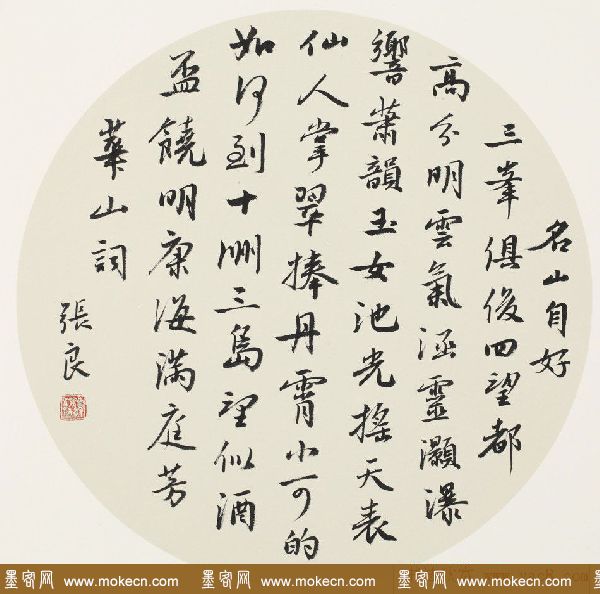 名山自好
三峯俱俊四望都
高分明雲氣涵靈灝瀑
響蕭韻玉女池光搖天表
仙人掌翠捧丹霄小可的
如何到十洲三島望似酒
盃饒明康海滿庭芳
華山詞
張良
墨客网 www.mokecn.com 墨客网 www.mokecn.com 墨客网 www.mokecn.com